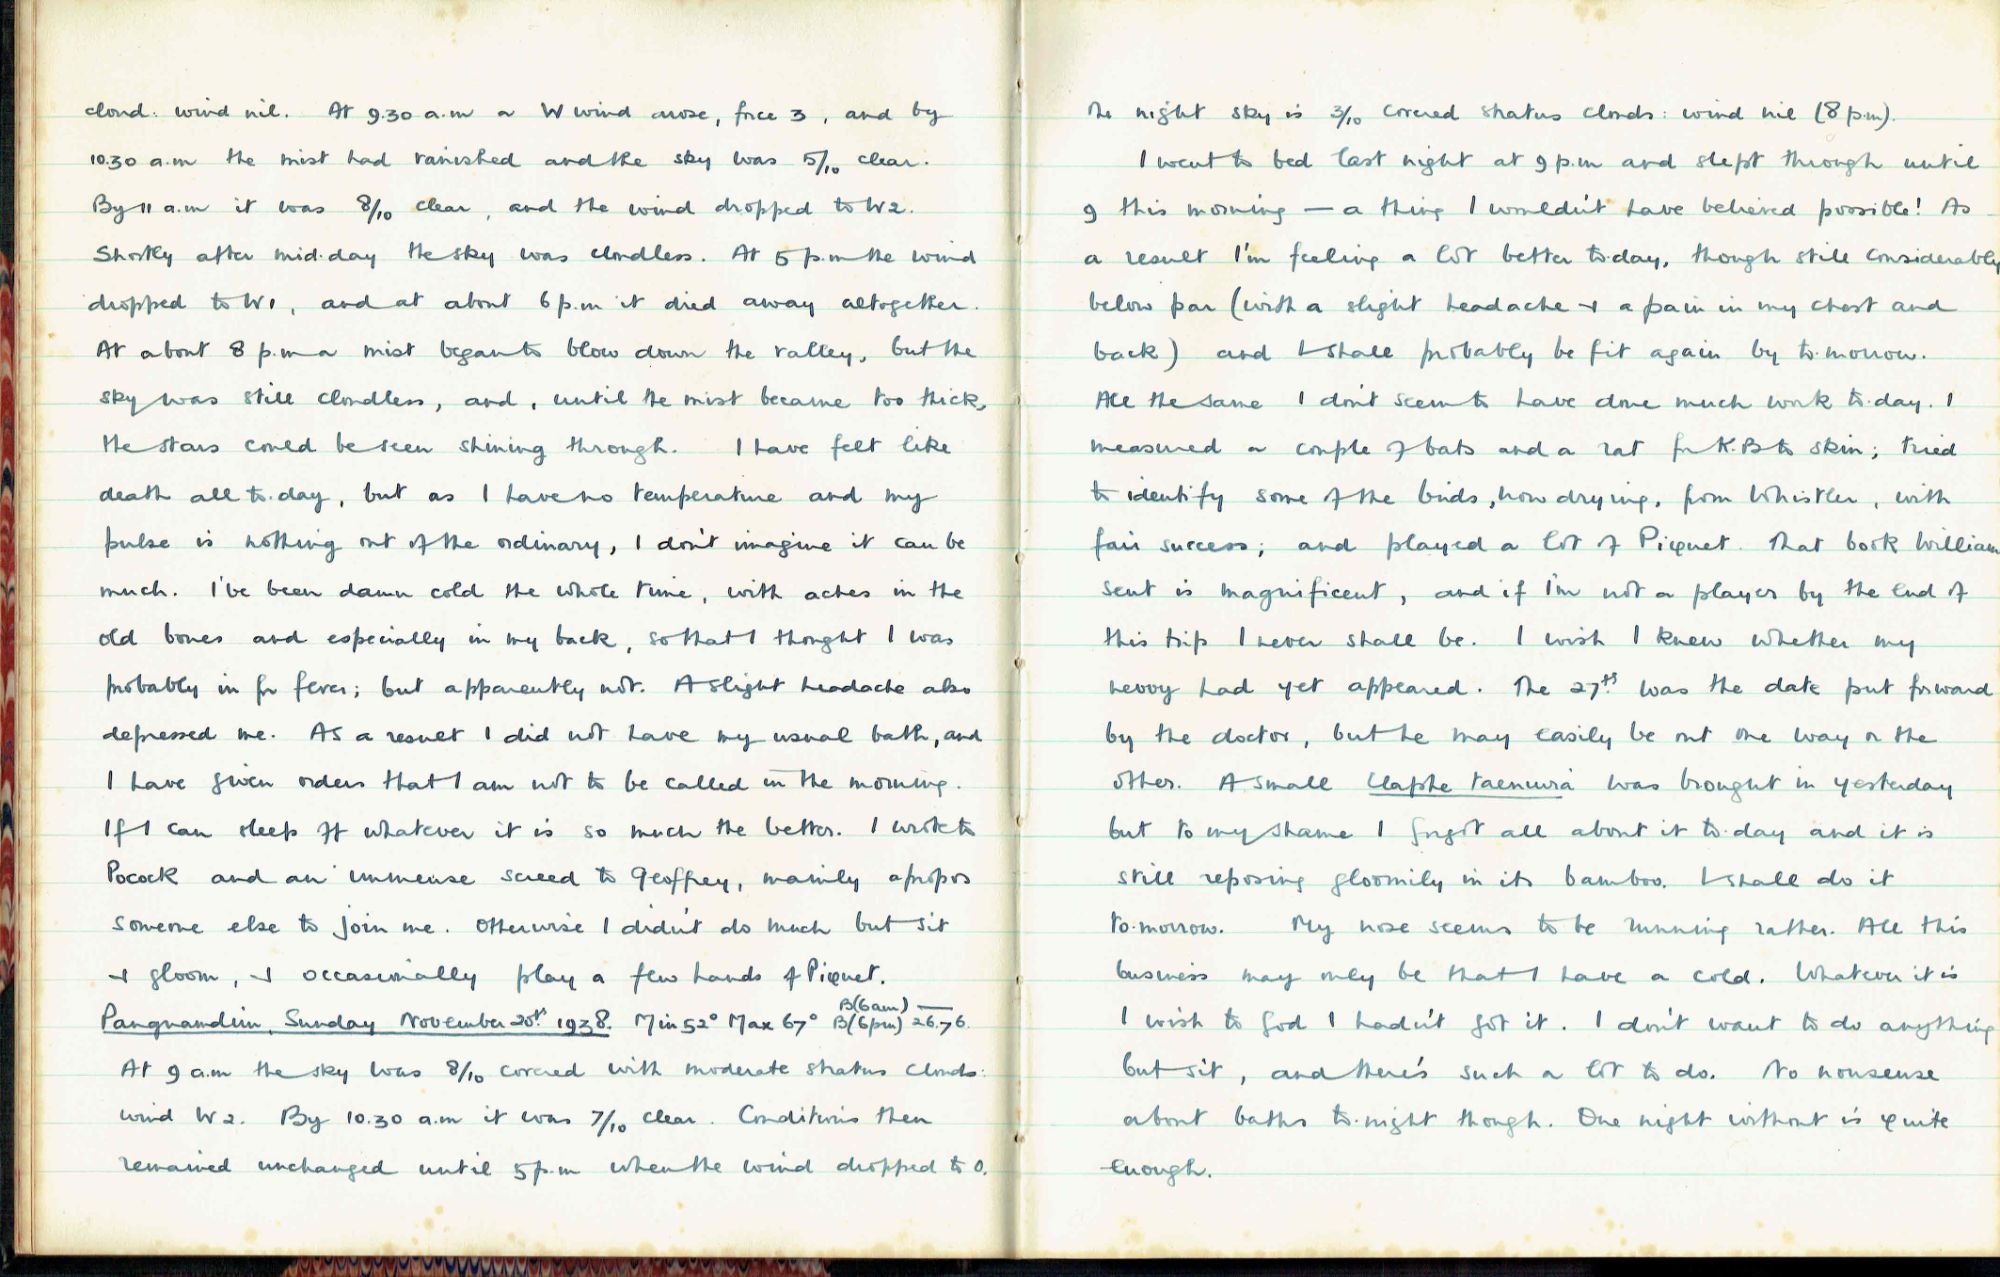 cloud: wind nil. At 9.30 a.m a W wind arose, force 3, and by
10.30 a.m the mist had vanished and the sky was 5/10 clear.
By 11 a.m it was 8/10 clear, and the wind dropped to W2.
Shortly after mid-day the sky was cloudless. At 5 p.m the wind
dropped to W1, and at about 6 p.m it died away altogether.
At about 8 p.m a mist began to blow down the valley, but the
sky was still cloudless, and, until the mist became too thick,
the stars could be seen shining through. I have felt like
death all to-day, but as I have no temperature and my
pulse is nothing out of the ordinary, I don't imagine it can be
much. I've been damn cold the whole time, with aches in the
old bones and especially in my back, so that I thought I was
probably in for fever; but apparently not. A slight headache also
depressed me. As a result I did not have my usual bath, and
I have given orders that I am not to be called in the morning.
If I can sleep off whatever it is so much the better. I wrote to
Pocock and an immense screed to Geoffrey, mainly apropos
someone else to join me. Otherwise I didn't do much but sit
+ gloom, + occasionally play a few hands of Picquet.
Pangnamdim, Sunday November 20th 1938. Min 52° Max 67° B(6am) — B(6pm) 26.76.
At 9 a.m the sky was 8/10 covered with moderate stratus clouds:
wind W2. By 10.30 a.m it was 7/10 clear. Conditions then
remained unchanged until 5 p.m when the wind dropped to 0.
The night sky is 3/10 covered stratus clouds: wind nil (8 p.m).
I went to bed last night at 9 p.m and slept through until
9 this morning — a thing I wouldn't have believed possible! As
a result I'm feeling a lot better to-day, though still considerably
below par (with a slight headache + a pain in my chest and
back) and I shall probably be fit again by to-morrow.
All the same I don't seem to have done much work to-day. I
measured a couple of bats and a rat for K.B to skin; tried
to identify some of the birds, now drying, from Whistler, with
fair success; and played a lot of Picquet. That book William
sent is magnificent, and if I'm not a player by the end of
this trip I never shall be. I wish I knew whether my
nevvy had yet appeared. The 27th was the date put forward
by the doctor, but he may easily be out one way or the
other. A small Elaphe taeniura was brought in yesterday
but to my shame I forgot all about it to-day and it is
still reposing gloomily in its bamboo. I shall do it
to-morrow. My nose seems to be running rather. All this
business may only be that I have a cold. Whatever it is
I wish to God I hadn't got it. I don't want to do anything
but sit, and there's such a lot to do. No nonsense
about baths to-night though. One night without is quite
enough.